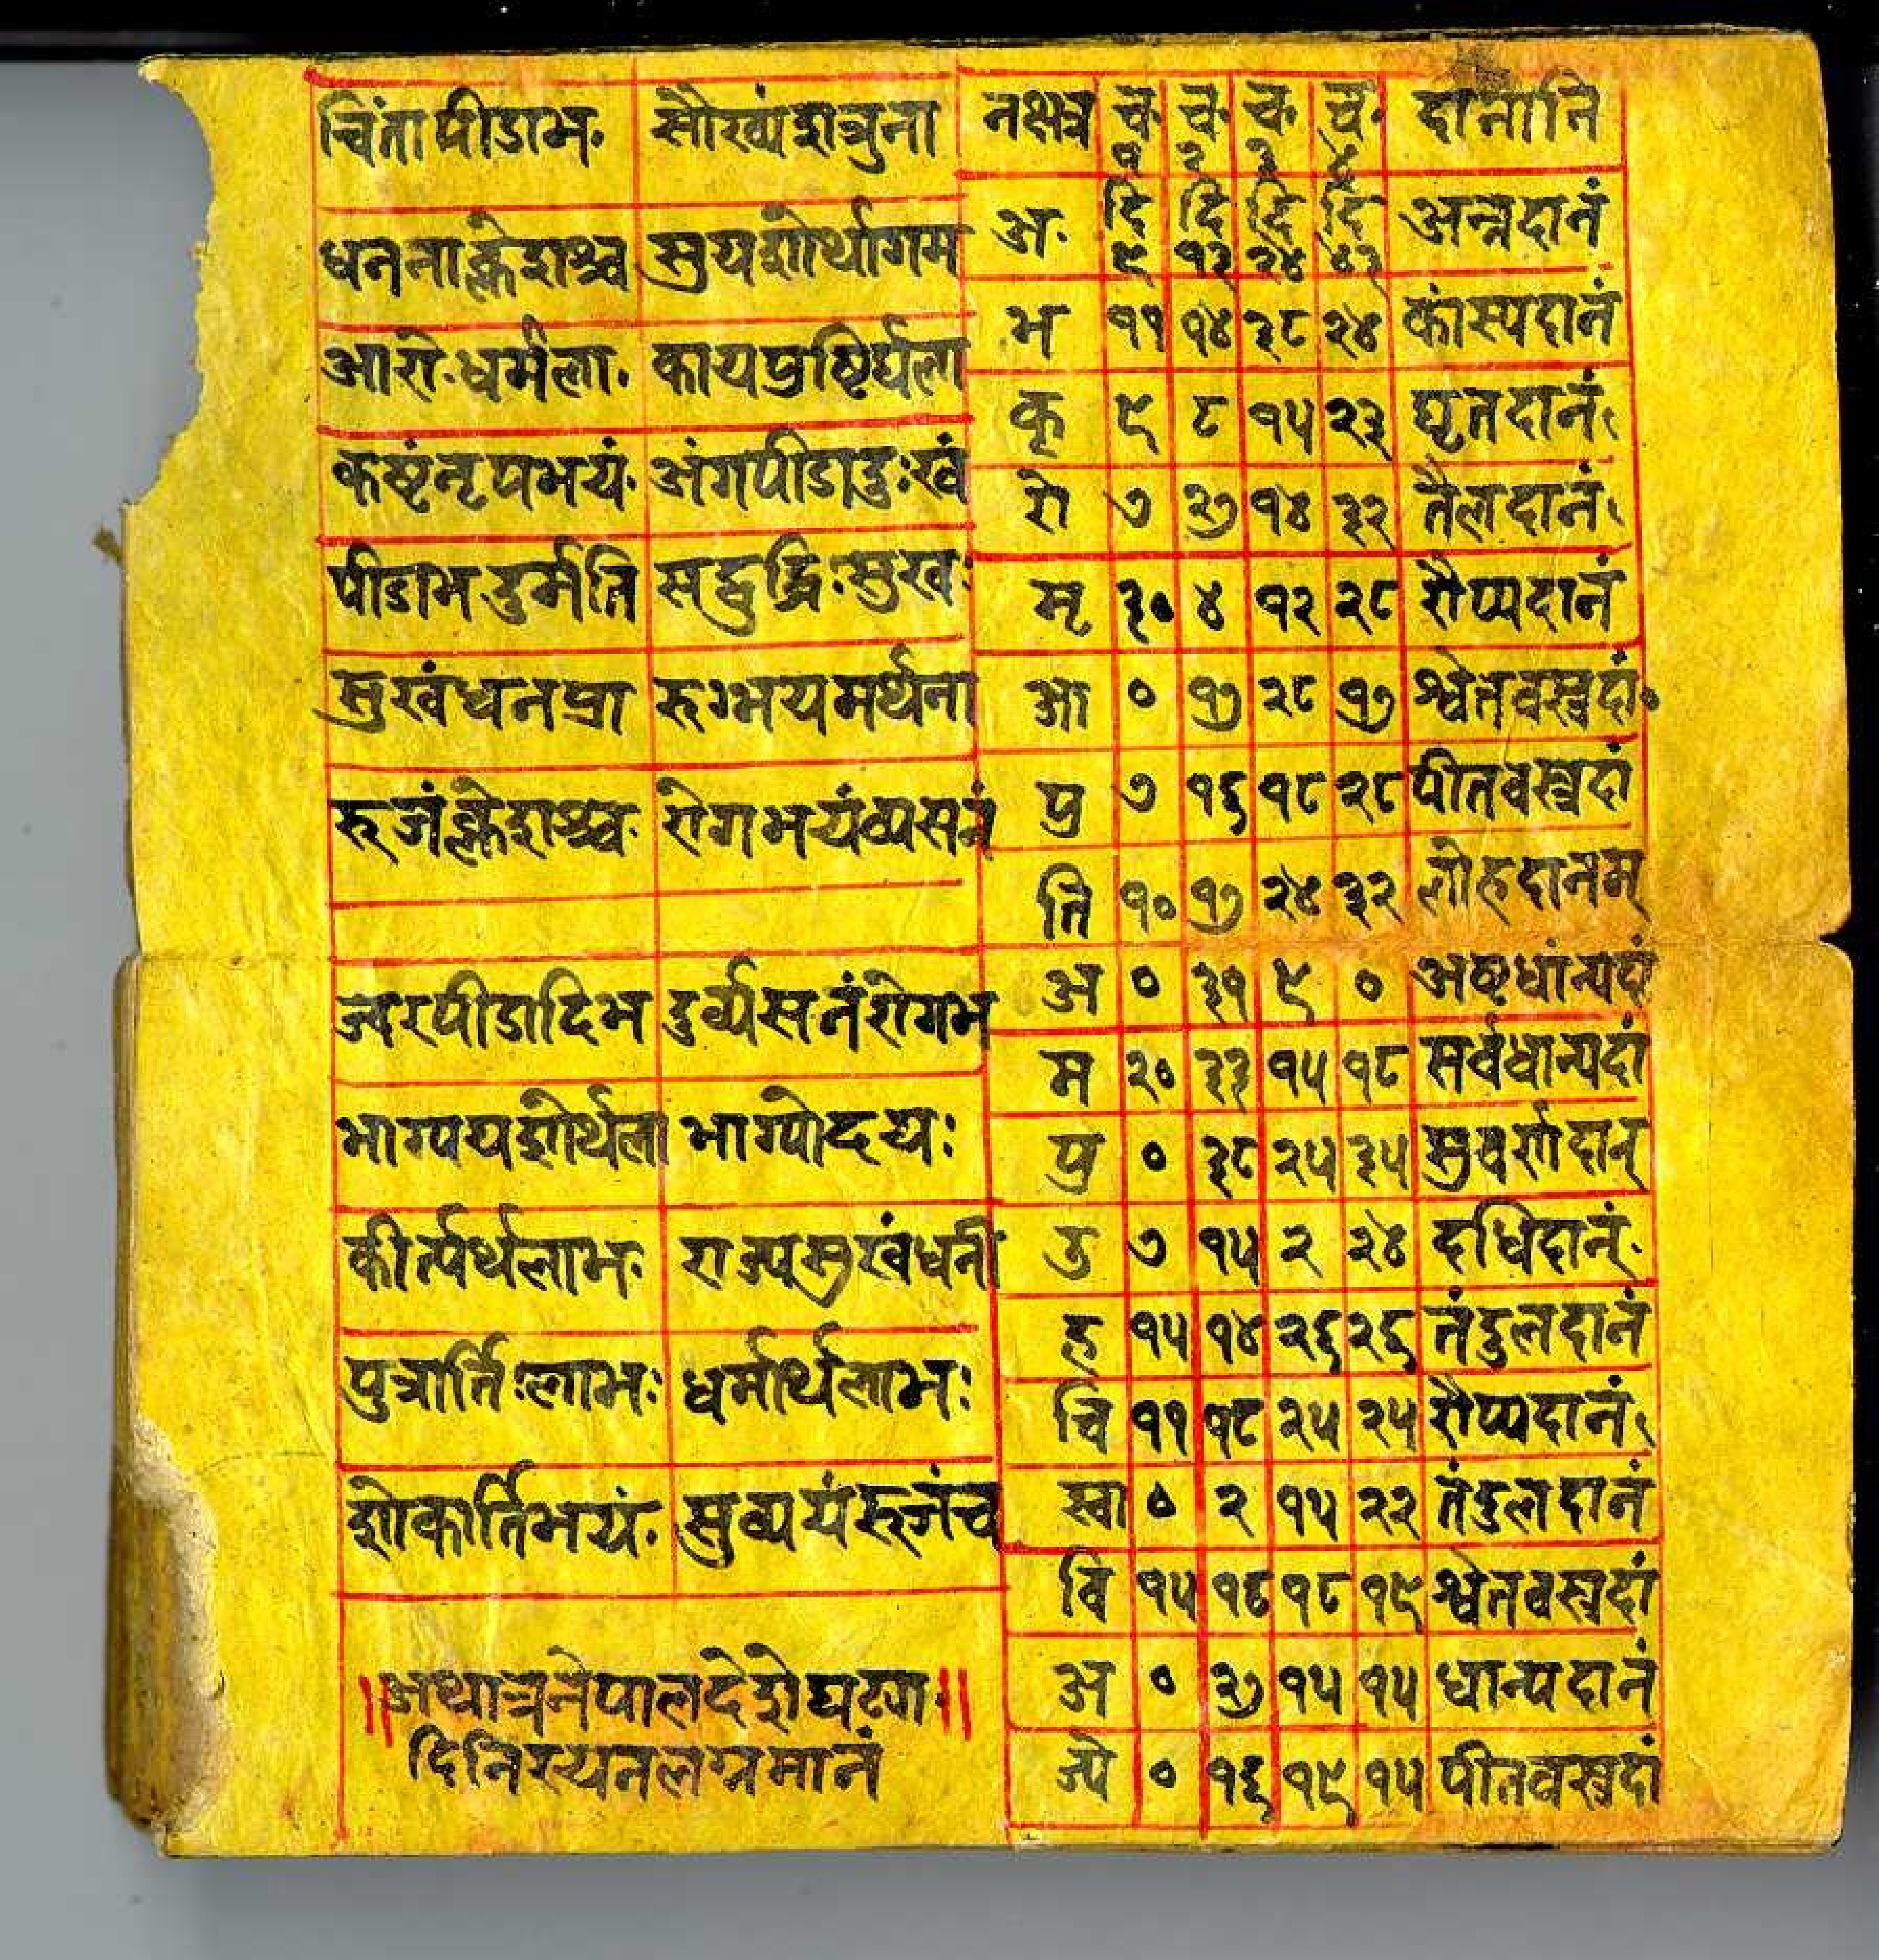 चिंतापीडाभ. सौख्यंशत्रुना
धननाक्लेशश्च सुयशोर्थागम
आरो.धर्मला. कायपुष्टिर्घला
कष्टंनृपभयं. अंगपीडादुःखं
पीडाभ.दुर्मति सद्बुद्धिःसुख:
सुखंधनप्रा रुग्भयमर्थना
रूजंक्लेशश्च. रोगभयंव्यसनं
ज्वरपीडादिभ दुर्व्यसनंरोगभ
भाग्ययशोर्थला भाग्योदयः
कीर्त्यर्थलाभ. राज्यसुखंधनी
पुत्रार्तिःलाभः धर्मार्थलाभः
शोकार्तिभयं. सुव्ययंरूजंच
॥अथात्रनेपालदेशेघट्या.॥
दिनिरयनलग्नमानं
नक्षत्र च १ च २ च ३ च. ४ दानानि
अ. दि ९ दि १३ दि २४ दि ४३ अन्नदानं
भ ११ १४ ३८ २४ कांस्यदानं
कृ ९ ८ १५ २३ घृतदानं.
रो ७ २७ १४ ३२ तैलदानं.
मृ ३० ४ १२ २८ रौप्यदानं
आ ० १७ २८ १७ श्वेतवस्त्रदां०
पु ७ १६ १८ २८ पीतवस्त्रदां
ति १० १७ २४ ३२ लोहदानम्
अ ० ३१ ९ ० अष्टधांन्यदां
म २० ३३ १५ १८ सर्वधान्यदां
पु ० ३८ २५ ३५ सुवर्णदान्
उ ७ १५ २ २४ दधिदान्.
ह १५ १४ २६ २६ तंडुलदानं
चि ११ १८ २५ २५ रौप्यदानं.
स्वा ० २ १५ २२ तंडुलदानं
वि १५ १६ १८ १९ श्वेतवस्त्रदां
अ ० २७ १५ १५ धान्यदानं
ज्ये ० १६ १९ १५ पीतवस्त्रदां